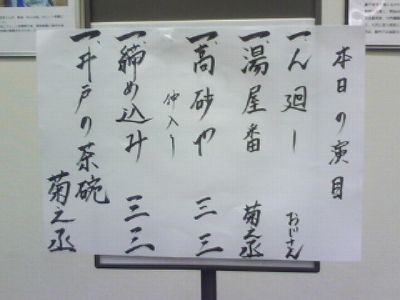 本日の演目
一、ん廻し おじさん
一、湯屋番 菊之丞
一、高砂や 三三
仲入り
一、締め込み 三三
一、井戸の茶碗 菊之丞